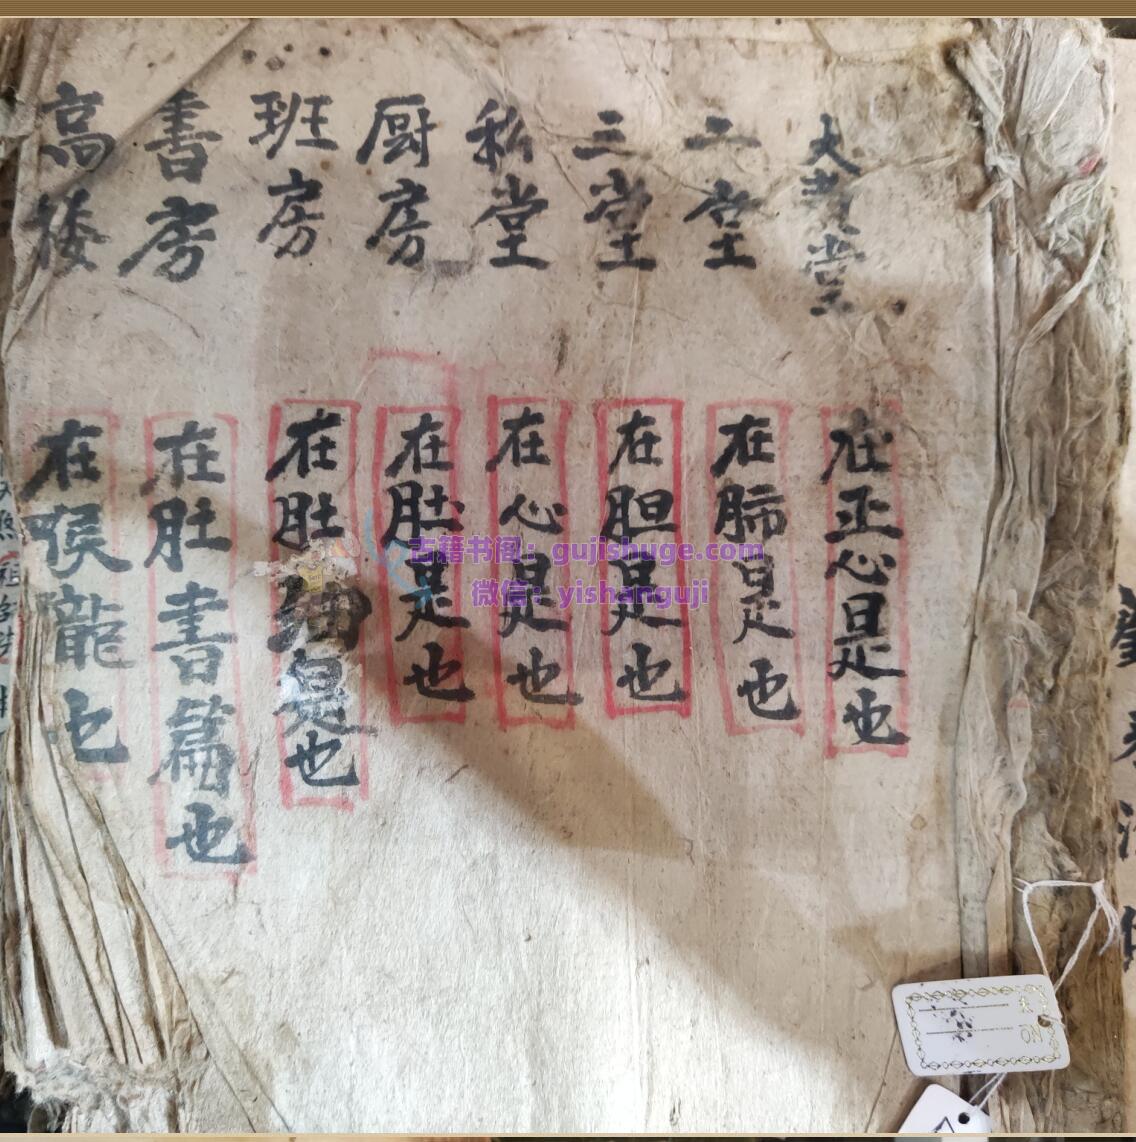 大堂
在正心是也
二堂
在肺是也
三堂
在胆是也
私堂
在心是也
厨房
在肚是也
班房
在肚是也
書房
在肚書篇也
高楼
在喉龍也
古籍书阁：gujishuge.com
微信：yishanguji
NO